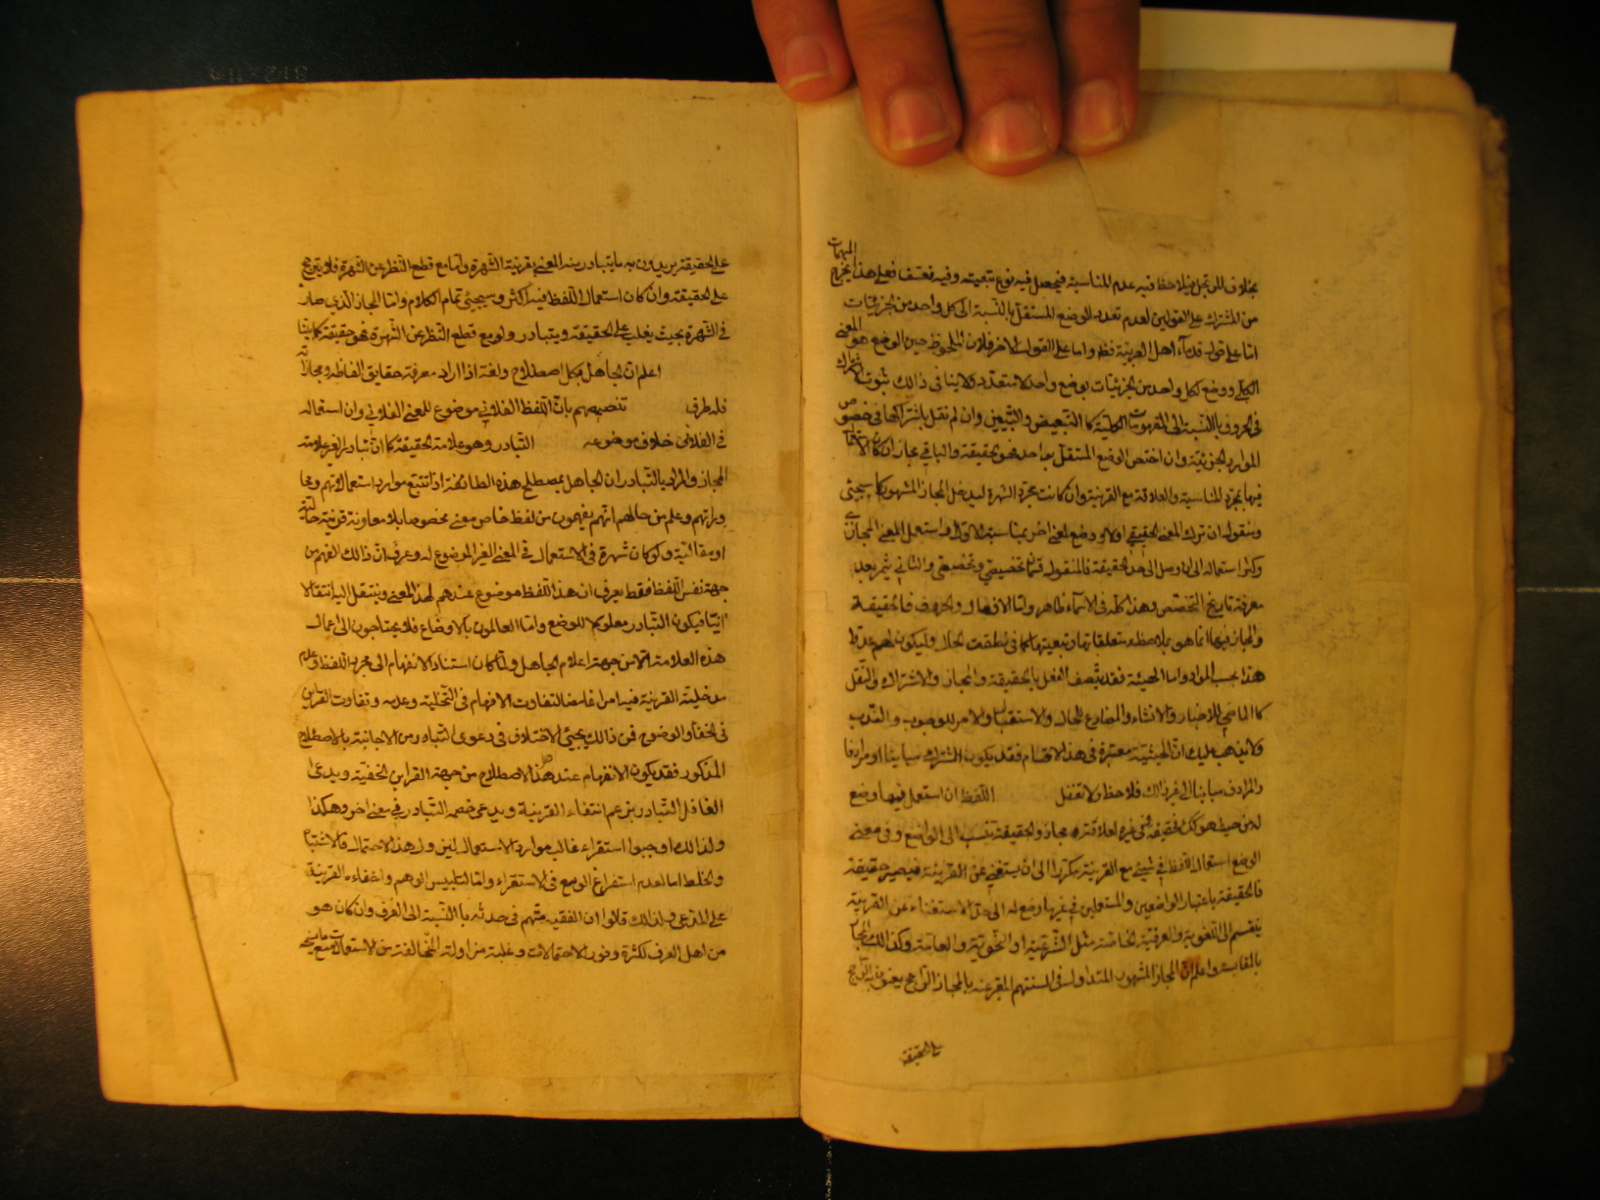 المبهمات
بخلاف المرتجل فيلاحظ فيه عدم المناسبة فيحصل فيه نوع تبعيته وفيه تعسف فعلى هذا يخرج
من المشترك على القولين لعدم تعدد الوضع المستقل بالنسبة الى كل واحد من الجزئيات
اما على قول قدماء اهل العربية فظ واما على القول الاخر فلان الملحوظ حين الوضع هو المعنى
الكلى ووضع لكل واحد من الجزئيات بوضع واحد لا متعدد ولا ينافى ذالك ثبوت الاشتراك
فى الحروف بالنسبة الى المفهومات الكلية كالتبعيض والتبيين وان لم نقل باشتراكها فى خصوص
الموارد الجزئية وان اختص الوضع المستقل بواحد فهو الحقيقة والباقي مجاز ان كان الاستعمال
فيها بمجرد المناسبة والعلاقة مع القرينة وان كانت مجرد الشهرة ليدخل المجاز المشهور كما سيجئ
ومنقول ان ترك المعنى الحقيقى اولا ووضع لمعنى اخر بمناسبة الاول او استعمل المعنى المجازى
وكثر استعماله الى ان وصل الى حد الحقيقة فالمنقول قسمان تخصيصى وتخصصى والثانى يثمر بعد
معرفة تاريخ التخصص وهذا كله فى الاسماء ظاهر واما الافعال والحروف فالحقيقة
والمجاز فيهما انما هو بملاحظة متعلقاتها وتبعيتها كما فى نطقت الحال وليكون لهم عدوا
هذا بحسب المواد واما الهيئة فقد يتصف الفعل بالحقيقة والمجاز والاشتراك والنقل
كالماضى للاخبار والانشاء والمضارع للحال والاستقبال والامر للوجوب والندب
ولا يذهب عليك ان الحيثية معتبرة فى هذه الاقسام فقد يكون المشترك مباينا او مرادفا
والمرادف مباينا الى غير ذالك فلاحظ ولا تغفل اللفظ ان استعمل فيما وضع
له من حيث هو كك فحقيقة وفى غيره لعلاقة مجاز والحقيقة تنسب الى الواضع وفى معنى
الوضع استعمال اللفظ فى شيئ مع القرينة مكررا الى ان يستغنى عن القرينة فيصير حقيقة
فالحقيقة باعتبار الواضعين والمستعملين فى غير ما وضع له الى حد الاستغناء عن القرينة
ينقسم الى اللغوية والعرفية الخاصة مثل الشرعية او النحوية والعامة وكذالك المجاز
بالمقايسة واعلم ان المجاز المشهور المتداول فى السنتهم المعبر عنه بالمجاز الراجح يعنون به الراجح
على الحقيقة
على الحقيقة يريدون به ما يتبادر منه المعنى بقرينة الشهرة واما مع قطع النظر عن الشهرة فلا يترجح
على الحقيقة وان كان استعمال اللفظ فيه اكثر وسيجئ تمام الكلام واما المجاز الذى صار
فى الشهرة بحيث يغلب على الحقيقة ويتبادر ولو مع قطع النظر عن الشهرة فهو حقيقة كما بينا
اعلم ان الجاهل بكل اصطلاح ولغة اذا اراد معرفة حقايق الفاظه ومجازاته
فله طرق تنصيصهم بان اللفظ الفلانى موضوع للمعنى الفلانى وان استعماله
فى الفلانى خلاف موضوعه التبادر وهو علامة الحقيقة كما ان تبادر الغير علامة
المجاز والمراد بالتبادر ان الجاهل بمصطلح هذه الطائفة اذا تتبع موارد استعمالاتهم ومحا
وراتهم وعلم من حالهم انهم يفهمون من لفظ خاص معنى مخصوصا بلا معاونة قرينة حالية
او مقالية ولو كان شهرة فى الاستعمال فى المعنى الغير الموضوع له وعرف ان ذالك الفهم من
جهة نفس اللفظ فقط يعرف ان هذا اللفظ موضوع عندهم لهذا المعنى وينتقل اليه انتقالا
انيا فيكون التبادر معلولا للوضع واما العالمون بالاوضاع فلا يحتاجون الى اعمال
هذه العلامة الا من جهة اعلام الجاهل ولما كان استناد الانفهام الى مجرد اللفظ وعدم
مدخلية القرينة فيه امرا غامضا لتفاوت الافهام فى التخلية وعدمه وتفاوت القراين
فى الخفاء والوضوح فمن ذالك يجئ الاختلاف فى دعوى التبادر من الاجانبة بالاصطلاح
المذكور فقد يكون الانفهام عند هذا الاصطلاح من جهة القراين الخفية ويدعى
الغافل التبادر بزعم انتفاء القرينة ويدعى خصمه التبادر فى معنى اخر وهكذا
ولذالك اوجبوا استقراء غالب موارد الاستعمال ليزول هذا الاحتمال فالاشتباه
والخلط اما لعدم استفراغ الوسع فى الاستقراء واما لتلبيس الوهم واخفاء القرينة
على المدعى ولذالك قالوا ان الفقيه متهم فى حدسه بالنسبة الى العرف وان كان هو
من اهل العرف لكثرة وفور الاحتمالات وغلبة مزاولة المخالفة من الاستعمالات مع ما يسنحه